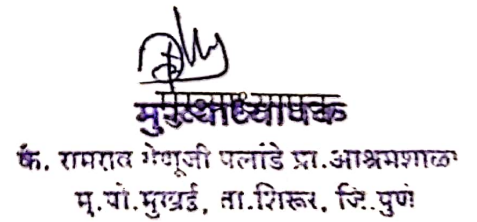 मुख्याध्यापक
कै. रामराव गेणूजी पलांडे प्रा.आश्रमशाळा
मु.पो.मुखई, ता.शिरूर, जि.पुणे